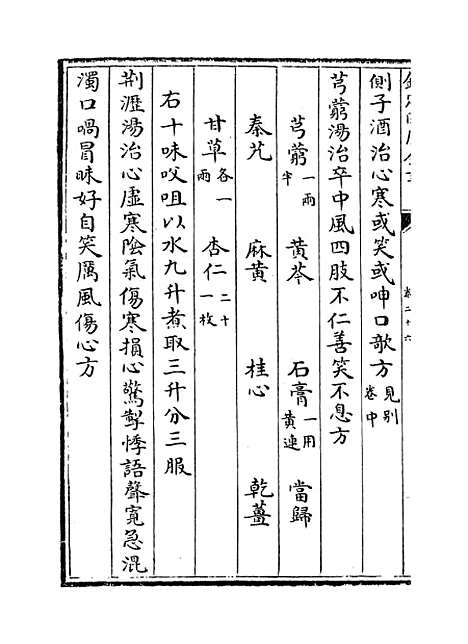 側子酒治心寒或笑或呻口歌方見別卷中
芎藭湯治卒中風四肢不仁善笑不息方
芎藭一兩半 黄芩 石膏一用黄連 當歸
秦艽 麻黄 桂心 乾薑
甘草各一兩 杏仁二十一枚
右十味㕮咀以水九升煮取三升分三服
荆瀝湯治心虛寒隂氣傷寒損心驚掣悸語聲寛急混
濁口喎冒昧好自笑厲風傷心方